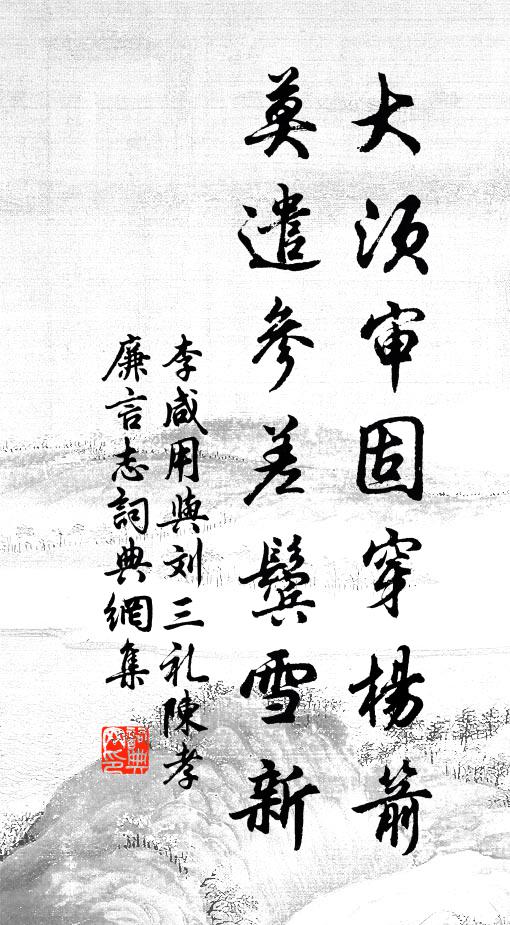 大须审固穿杨箭
莫遣参差鬓雪新
李咸用與刘三礼陳孝
廉言志詞典網集